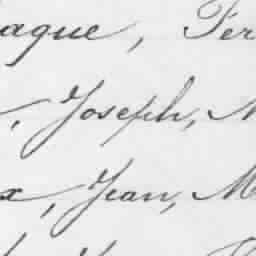 aque, Fer
, Joseph, M
x, Jean, M